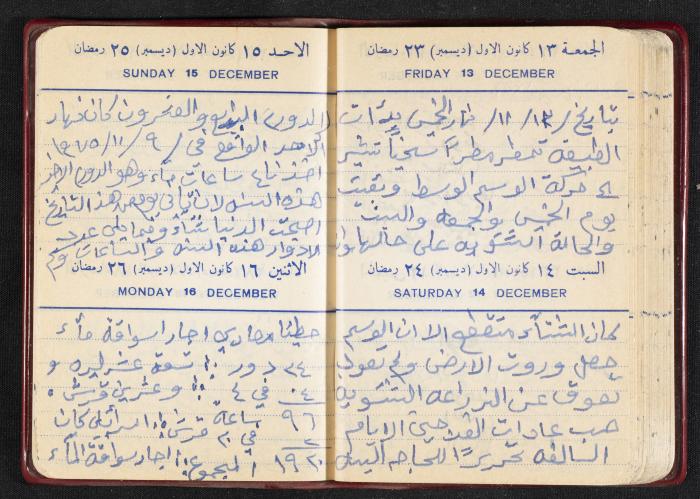 الجمعة ١٣ كانون الاول (ديسمبر) ٢٣ رمضان
FRIDAY 13 DECEMBER
بتاريخ / ١٣ / ١١ / نهار الخميس بدأت
الطبيعة تمطر مطراً سخياً تبشر
في حركة الوسم الوسط وبقيت
يوم الخميس والجمعه والسبت
والحالة الشتويه على حالها
السبت ١٤ كانون الاول (ديسمبر) ٢٤ رمضان
SATURDAY 14 DECEMBER
كان الشتاء متقطع الا ان الوسم
حصل وروت الارض ولم يعود
تعوق عن الزراعه الشتويه
حسب عادات الفلاحين الايام
السالفه تحريراً للحاجه
الاحد ١٥ كانون الاول (ديسمبر) ٢٥ رمضان
SUNDAY 15 DECEMBER
الدور الرابع والعشرون كان نهار
الاحد الواقع في / ٩ / ١١ / ١٩٧٥
اخذنا ٤ ساعات ماء وهو الدور الاخير
هذه السنه لان ثاني يوم من هذا التاريخ
اصبحت الدنيا شتاء وفيما يلي عدد
الادوار هذه السنه والساعات
الاثنين ١٦ كانون الاول (ديسمبر) ٢٦ رمضان
MONDAY 16 DECEMBER
حطينا مصاري اجار اسواقة ماء
٢٤ دور تسعة عشر ليره و
٠٤ في ٤ وعشرين قرش
٩٦ ساعة اسرائيلي كان
٢ في ٢٠ قرش
١٩٢٠ المجموع اجار سواقة الماء